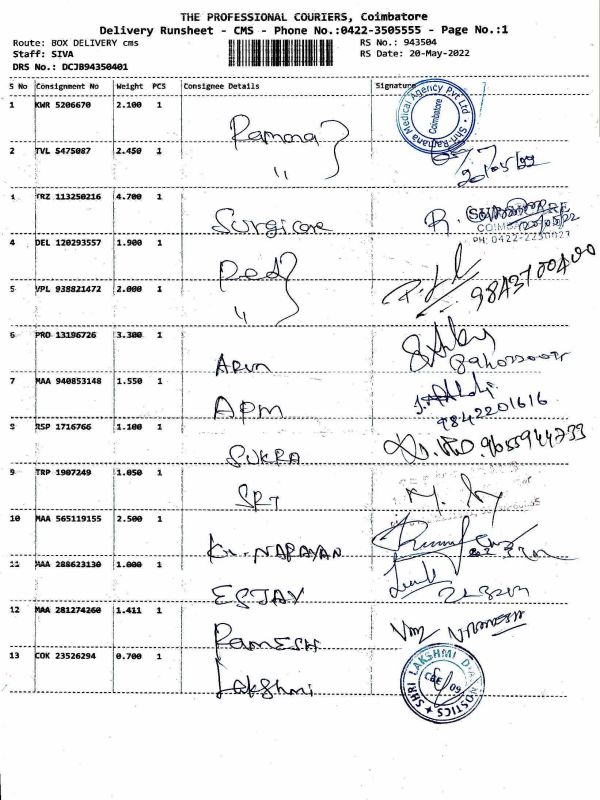 THE PROFESSIONAL COURIERS, Coimbatore
Delivery Runsheet - CMS - Phone No.:0422-3505555 - Page No.:1
Route: BOX DELIVERY cms RS No.: 943504
Staff: SIVA RS Date: 20-May-2022
DRS No.: DCJB94350401
S No Consignment No Weight PCS Consignee Details Signature
1 KWR 5206670 2.100 1 Ramona
Shri Ramana Medical Agency Pvt Ltd Coimbatore
2 TVL 5475087 2.450 1 " 20/05/22
TRZ 113250216 4.700 1 Surgicare R. SURGICARE
PH: 0422-2250023
4 DEL 120293557 1.900 1 Red
5 VPL 938821472 2.000 1 " 9843700400
6 PRO 13196726 3.300 1 Arun
7 MAA 940853148 1.550 1 APM
9842201616
8 RSP 1716766 1.100 1 SUKRA 9655944733
9 TRP 1907249 1.050 1 SRI
10 MAA 565119155 2.500 1 Kr. NARAYAN
11 MAA 288623130 1.000 1 ESJAY
12 MAA 281274260 1.411 1 RAMESH
13 COK 23526294 0.700 1 Lakshmi
SHRI LAKSHMI DIAGNOSTICS CBE 09